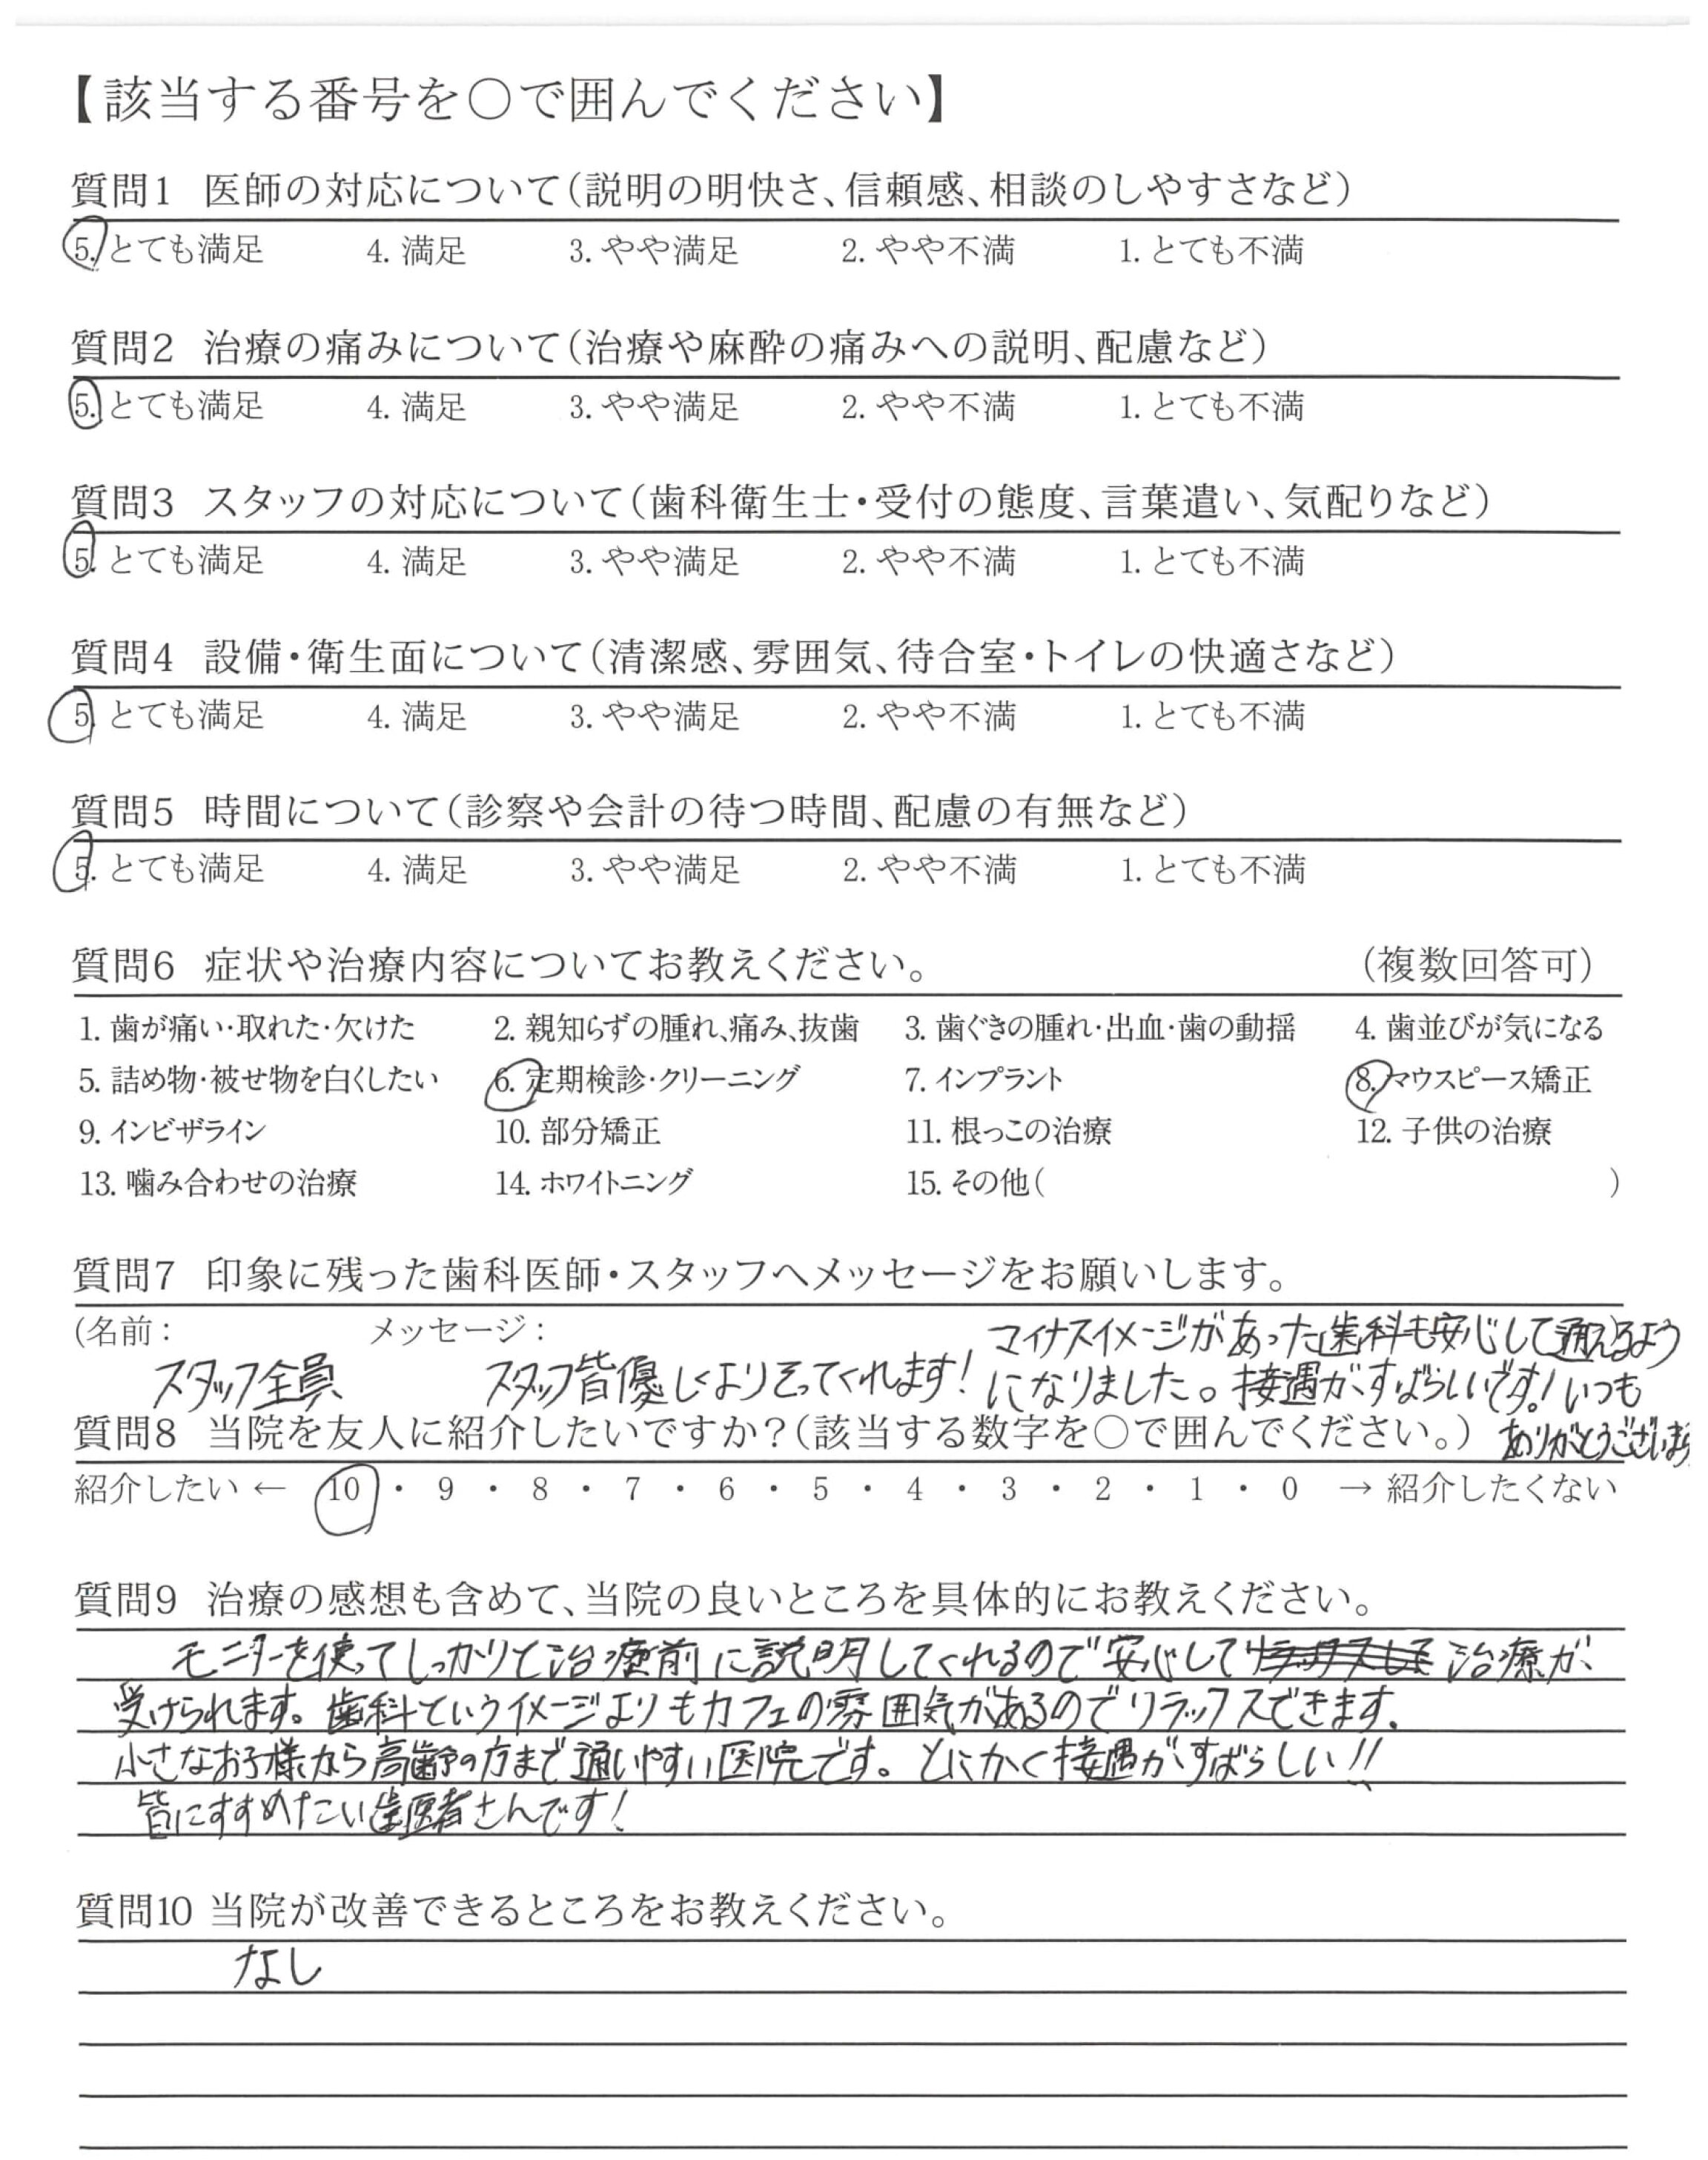 【該当する番号を○で囲んでください】
質問1 医師の対応について(説明の明快さ、信頼感、相談のしやすさなど)
5. とても満足 4. 満足 3. やや満足 2. やや不満 1. とても不満
質問2 治療の痛みについて(治療や麻酔の痛みへの説明、配慮など)
5. とても満足 4. 満足 3. やや満足 2. やや不満 1. とても不満
質問3 スタッフの対応について(歯科衛生士・受付の態度、言葉遣い、気配りなど)
5. とても満足 4. 満足 3. やや満足 2. やや不満 1. とても不満
質問4 設備・衛生面について(清潔感、雰囲気、待合室・トイレの快適さなど)
5. とても満足 4. 満足 3. やや満足 2. やや不満 1. とても不満
質問5 時間について(診察や会計の待つ時間、配慮の有無など)
5. とても満足 4. 満足 3. やや満足 2. やや不満 1. とても不満
質問6 症状や治療内容についてお教えください。 (複数回答可)
1. 歯が痛い・取れた・欠けた 2. 親知らずの腫れ、痛み、抜歯 3. 歯ぐきの腫れ・出血・歯の動揺 4. 歯並びが気になる
5. 詰め物・被せ物を白くしたい 6. 定期検診・クリーニング 7. インプラント 8. マウスピース矯正
9. インビザライン 10. 部分矯正 11. 根っこの治療 12. 子供の治療
13. 噛み合わせの治療 14. ホワイトニング 15. その他( )
質問7 印象に残った歯科医師・スタッフへメッセージをお願いします。
(名前: メッセージ:
スタッフ全員 スタッフ皆優しくよりそってくれます!
マイナスイメージがあった歯科も安心して通えるよう
になりました。接遇がすばらしいです!いつも
ありがとうございます
質問8 当院を友人に紹介したいですか?(該当する数字を○で囲んでください。)
紹介したい ← 10 ・ 9 ・ 8 ・ 7 ・ 6 ・ 5 ・ 4 ・ 3 ・ 2 ・ 1 ・ 0 → 紹介したくない
質問9 治療の感想も含めて、当院の良いところを具体的にお教えください。
モニターを使ってしっかりと治療前に説明してくれるので安心して治療が
受けられます。歯科というイメージよりもカフェの雰囲気があるのでリラックスできます.
小さなお子様から高齢の方まで通いやすい医院です。とにかく接遇がすばらしい!!
皆にすすめたい歯医者さんです!
質問10 当院が改善できるところをお教えください。
なし